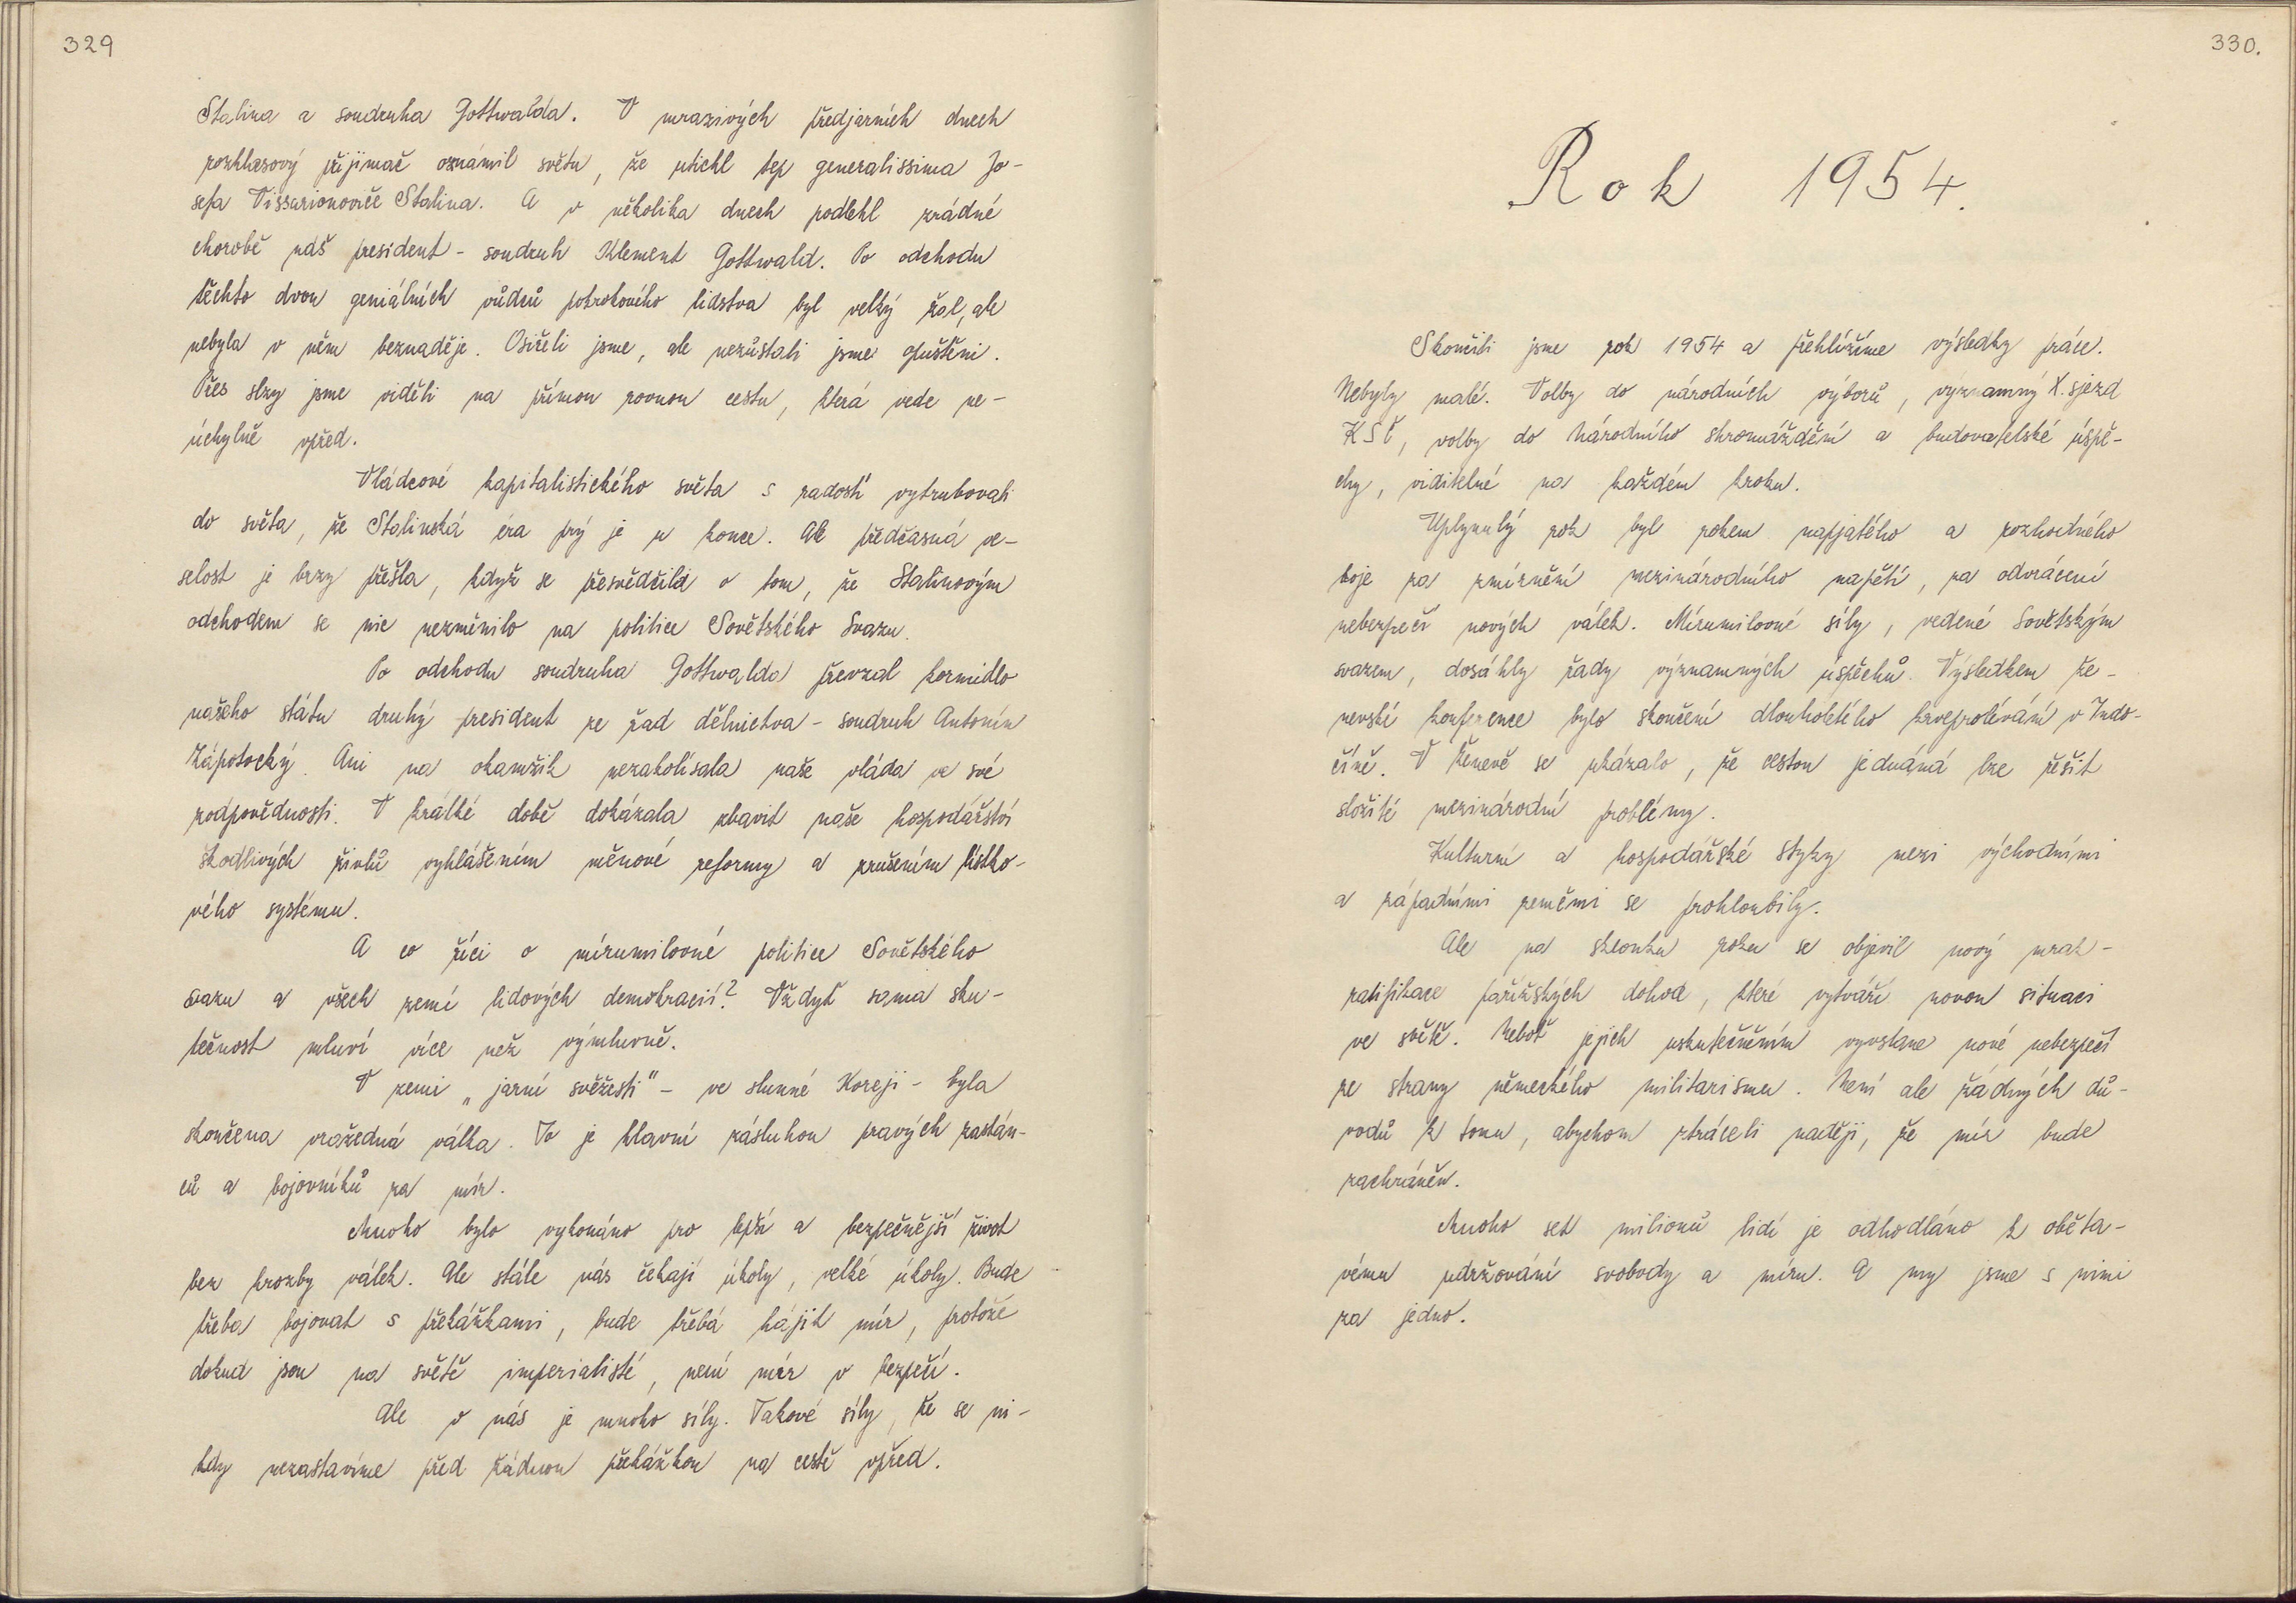 329
Stalina a soudruha Gottwalda. V mrazivých předjarních dnech
rozhlasový přijimač oznámil světu, že utichl tep generalissima Jo-
sefa Vissarionoviče Stalina. A v několika dnech podlehl zrádné
chorobě náš president - soudruh Klement Gottwald. Po odchodu
těchto dvou geniálních vůdců pokrokového lidstva byl velký žal, ale
nebyla v něm beznaděje. Osiřeli jsme, ale nezůstali jsme opuštěni.
Přes slzy jsme viděli na přímou rovnou cestu, která vede ne-
úchylně vpřed.
Vládcové kapitalistického světa s radostí vytrubovali
do světa, že Stalinská éra prý je u konce. Ale předčasná ve-
selost je brzy přešla, když se přesvědčili o tom, že Stalinovým
odchodem se nic nezměnilo na politice Sovětského Svazu.
Po odchodu soudruha Gottwalda převzal kormidlo
našeho státu druhý president ze řad dělnictva - soudruh Antonín
Zápotocký. Ani na okamžik nezakolísala naše vláda ve své
zodpovědnosti. V krátké době dokázala zbavit naše hospodářství
škodlivých živlů vyhlášením měnové reformy a zrušením lístko-
vého systému.
A co říci o mírumilovné politice Sovětského
svazu a všech zemí lidových demokracií? Vždyť sama sku-
tečnost mluví více než výmluvně.
V zemi „jarní svěžesti" - ve slunné Koreji - byla
skončena vražedná válka. To je hlavní zásluhou pravých zastán-
ců a bojovníků za mír.
Mnoho bylo vykonáno pro lepší a bezpečnější život
bez hrozby válek. Ale stále nás čekají úkoly, velké úkoly. Bude
třeba bojovat s překážkami, bude třeba hájit mír, protože
dokud jsou na světě imperialisté, není mír v bezpečí.
Ale v nás je mnoho síly. Takové síly, že se ni-
kdy nezastavíme před žádnou překážkou na cestě vpřed.
330.
Rok 1954.
Skončili jsme rok 1954 a přehlížíme výsledky práce.
Nebyly malé. Volby do národních výborů, významný X. sjezd
KSČ, volby do Národního shromáždění a budovatelské úspě-
chy, viditelné na každém kroku.
Uplynulý rok byl rokem napjatého a rozhodného
boje za zmírnění mezinárodního napětí, za odvrácení
nebezpečí nových válek. Mírumilovné síly, vedené Sovětským
svazem, dosáhly řady významných úspěchů. Výsledkem že-
nevské konference bylo skončení dlouholetého krveprolévání v Indo-
číně. V Ženevě se ukázalo, že cestou jednáná lze řešit
složité mezinárodní problémy.
Kulturní a hospodářské styky mezi východními
a západními zeměmi se prohloubily.
Ale na sklonku roku se objevil nový mrak -
ratifikace pařížských dohod, které vytváří novou situaci
ve světě. Neboť jejich uskutečněním vyvstane nové nebezpečí
ze strany německého militarismu. Není ale žádných dů-
vodů k tomu, abychom ztráceli naději, že mír bude
zachráněn.
Mnoho set milionů lidí je odhodláno k oběta-
vému udržování svobody a míru. A my jsme s nimi
za jedno.